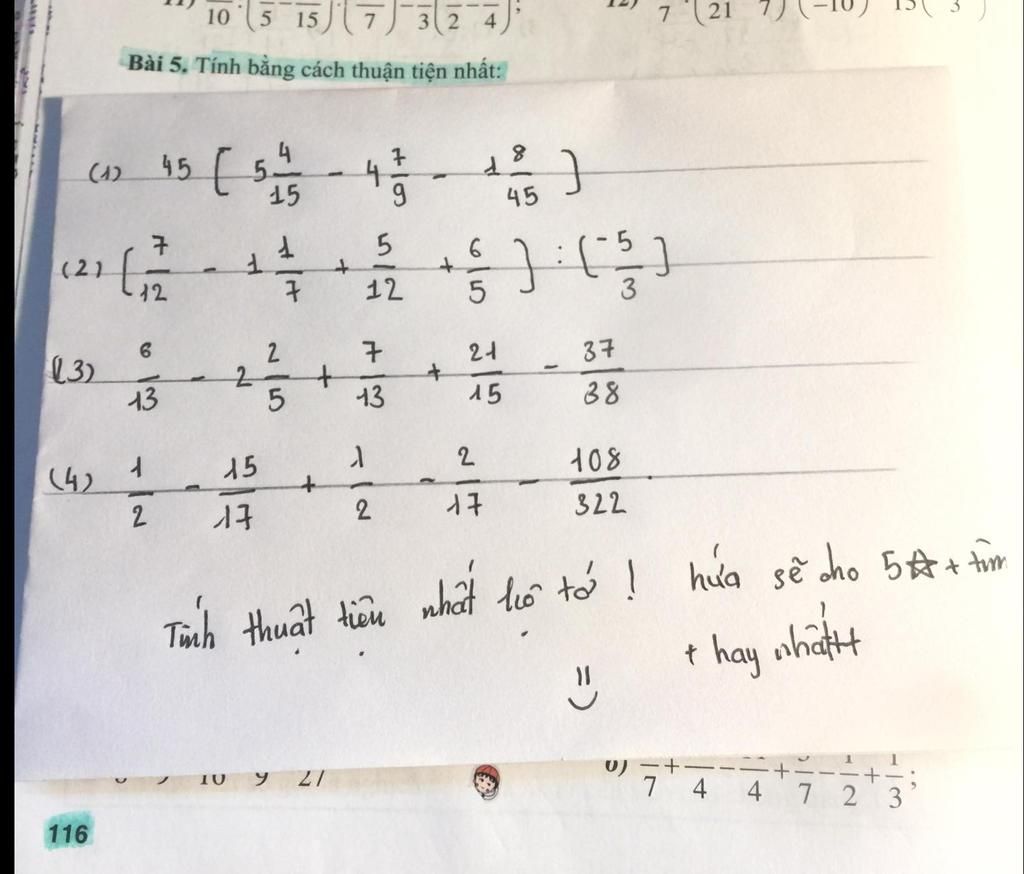 10 · ( 5 − 15 ) · ( 7 ) − 3 ( 2 − 4 ) ; 12) 7 · ( 21 7 ) ( −10 ) 15 ( 3 )
Bài 5. Tính bằng cách thuận tiện nhất:
(1) 45 [ 5 4/15 - 4 7/9 - 1 8/45 ]
(2) [ 7/12 - 1 1/7 + 5/12 + 6/5 ] : ( -5/3 ]
(3) 6/13 - 2 2/5 + 7/13 + 21/15 - 37/38
(4) 1/2 - 15/17 + 1/2 - 2/17 - 108/322.
Tính thuật tiện nhất hộ tớ ! hứa sẽ cho 5☆ + tim
+ hay nhất++
10 9 27
7 + 4 − 4 + 7 − 1/2 + 1/3 ;
116